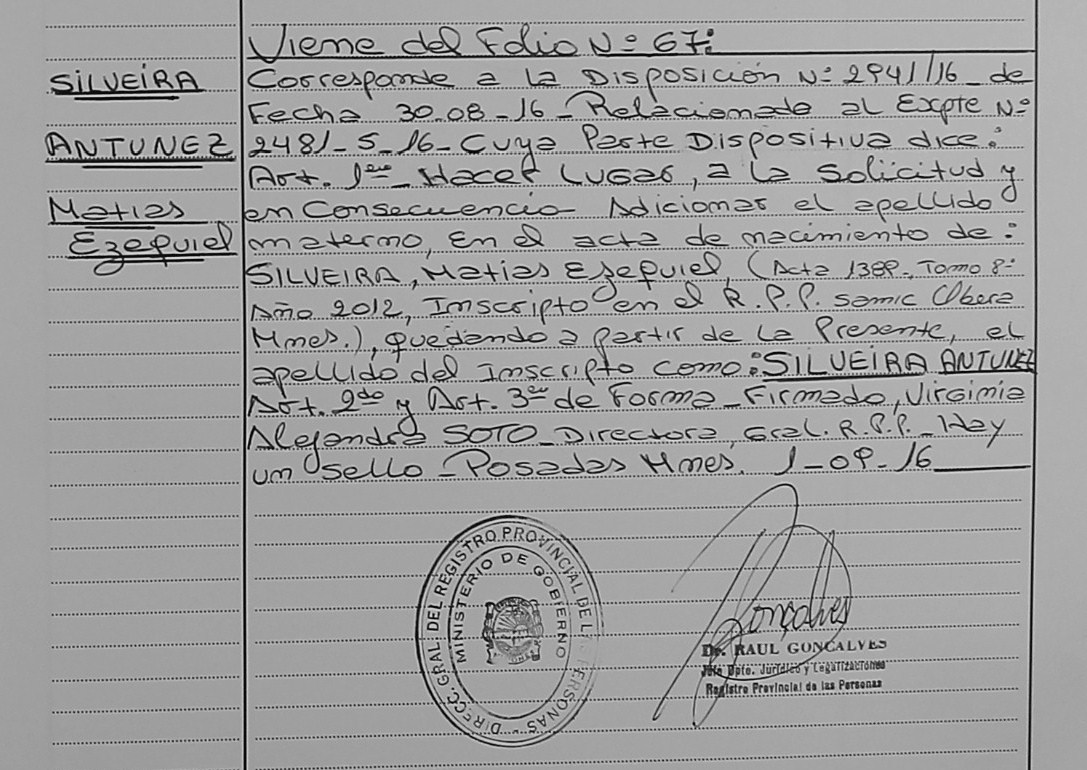 Viene del Folio Nº 67:
SILVEIRA
ANTUNEZ
Matias
Ezequiel
Corresponde a la Disposición Nº 2941//16_ de
Fecha 30.08_16_ Relacionado al Expte Nº
2481_S_16_ Cuya Parte Dispositiva dice:
Art. 1ero_ Hacer Lugar, a la Solicitud y
en Consecuencia Adicionar el apellido
materno, En el acta de nacimiento de:
SILVEIRA, Matias Ezequiel, (Acta 1389_ Tomo 8º
Año 2012, Inscripto en el R.P.P. Samic Obera
Mnes.), quedando a partir de la Presente, el
apellido del Inscripto como: SILVEIRA ANTUNEZ
Art. 2do y Art. 3ero de Forma_ Firmado, Virginia
Alejandra SOTO_ Directora, Gral. R.P.P._ Hay
un Sello_ Posadas Mnes. 1_09_16
DIRECC. GRAL. DEL REGISTRO PROVINCIAL DE LAS PERSONAS
MINISTERIO DE GOBIERNO
Gonçalves
Dr. RAUL GONÇALVES
Jefe Dpto. Jurídico y Legalizaciones
Registro Provincial de las Personas